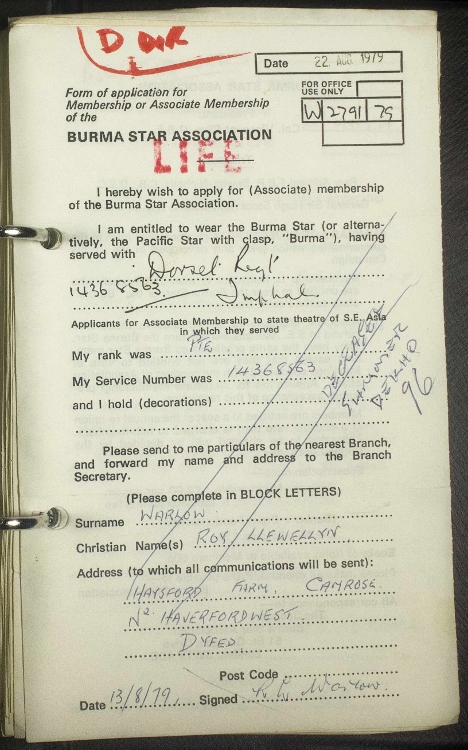 D
Date 22 AUG 1979
Form of application for
Membership or Associate Membership
of the
FOR OFFICE
USE ONLY
W 2791 79
BURMA STAR ASSOCIATION
LIFE
I hereby wish to apply for (Associate) membership
of the Burma Star Association.
I am entitled to wear the Burma Star (or alterna-
tively, the Pacific Star with clasp, "Burma"), having
served with Dorset Regt
14368563 Imphal
Applicants for Associate Membership to state theatre of S.E. Asia
in which they served
My rank was PTE
My Service Number was 14368563
and I hold (decorations)
DECEASED
SUMMER
96
Please send to me particulars of the nearest Branch,
and forward my name and address to the Branch
Secretary.
(Please complete in BLOCK LETTERS)
Surname WARLOW
Christian Name(s) ROY LLEWELLYN
Address (to which all communications will be sent):
HAYSFORD FARM, CAMROSE
Nr. HAVERFORDWEST
DYFED
Post Code
Date 13/8/79. Signed R. L. Warlow.